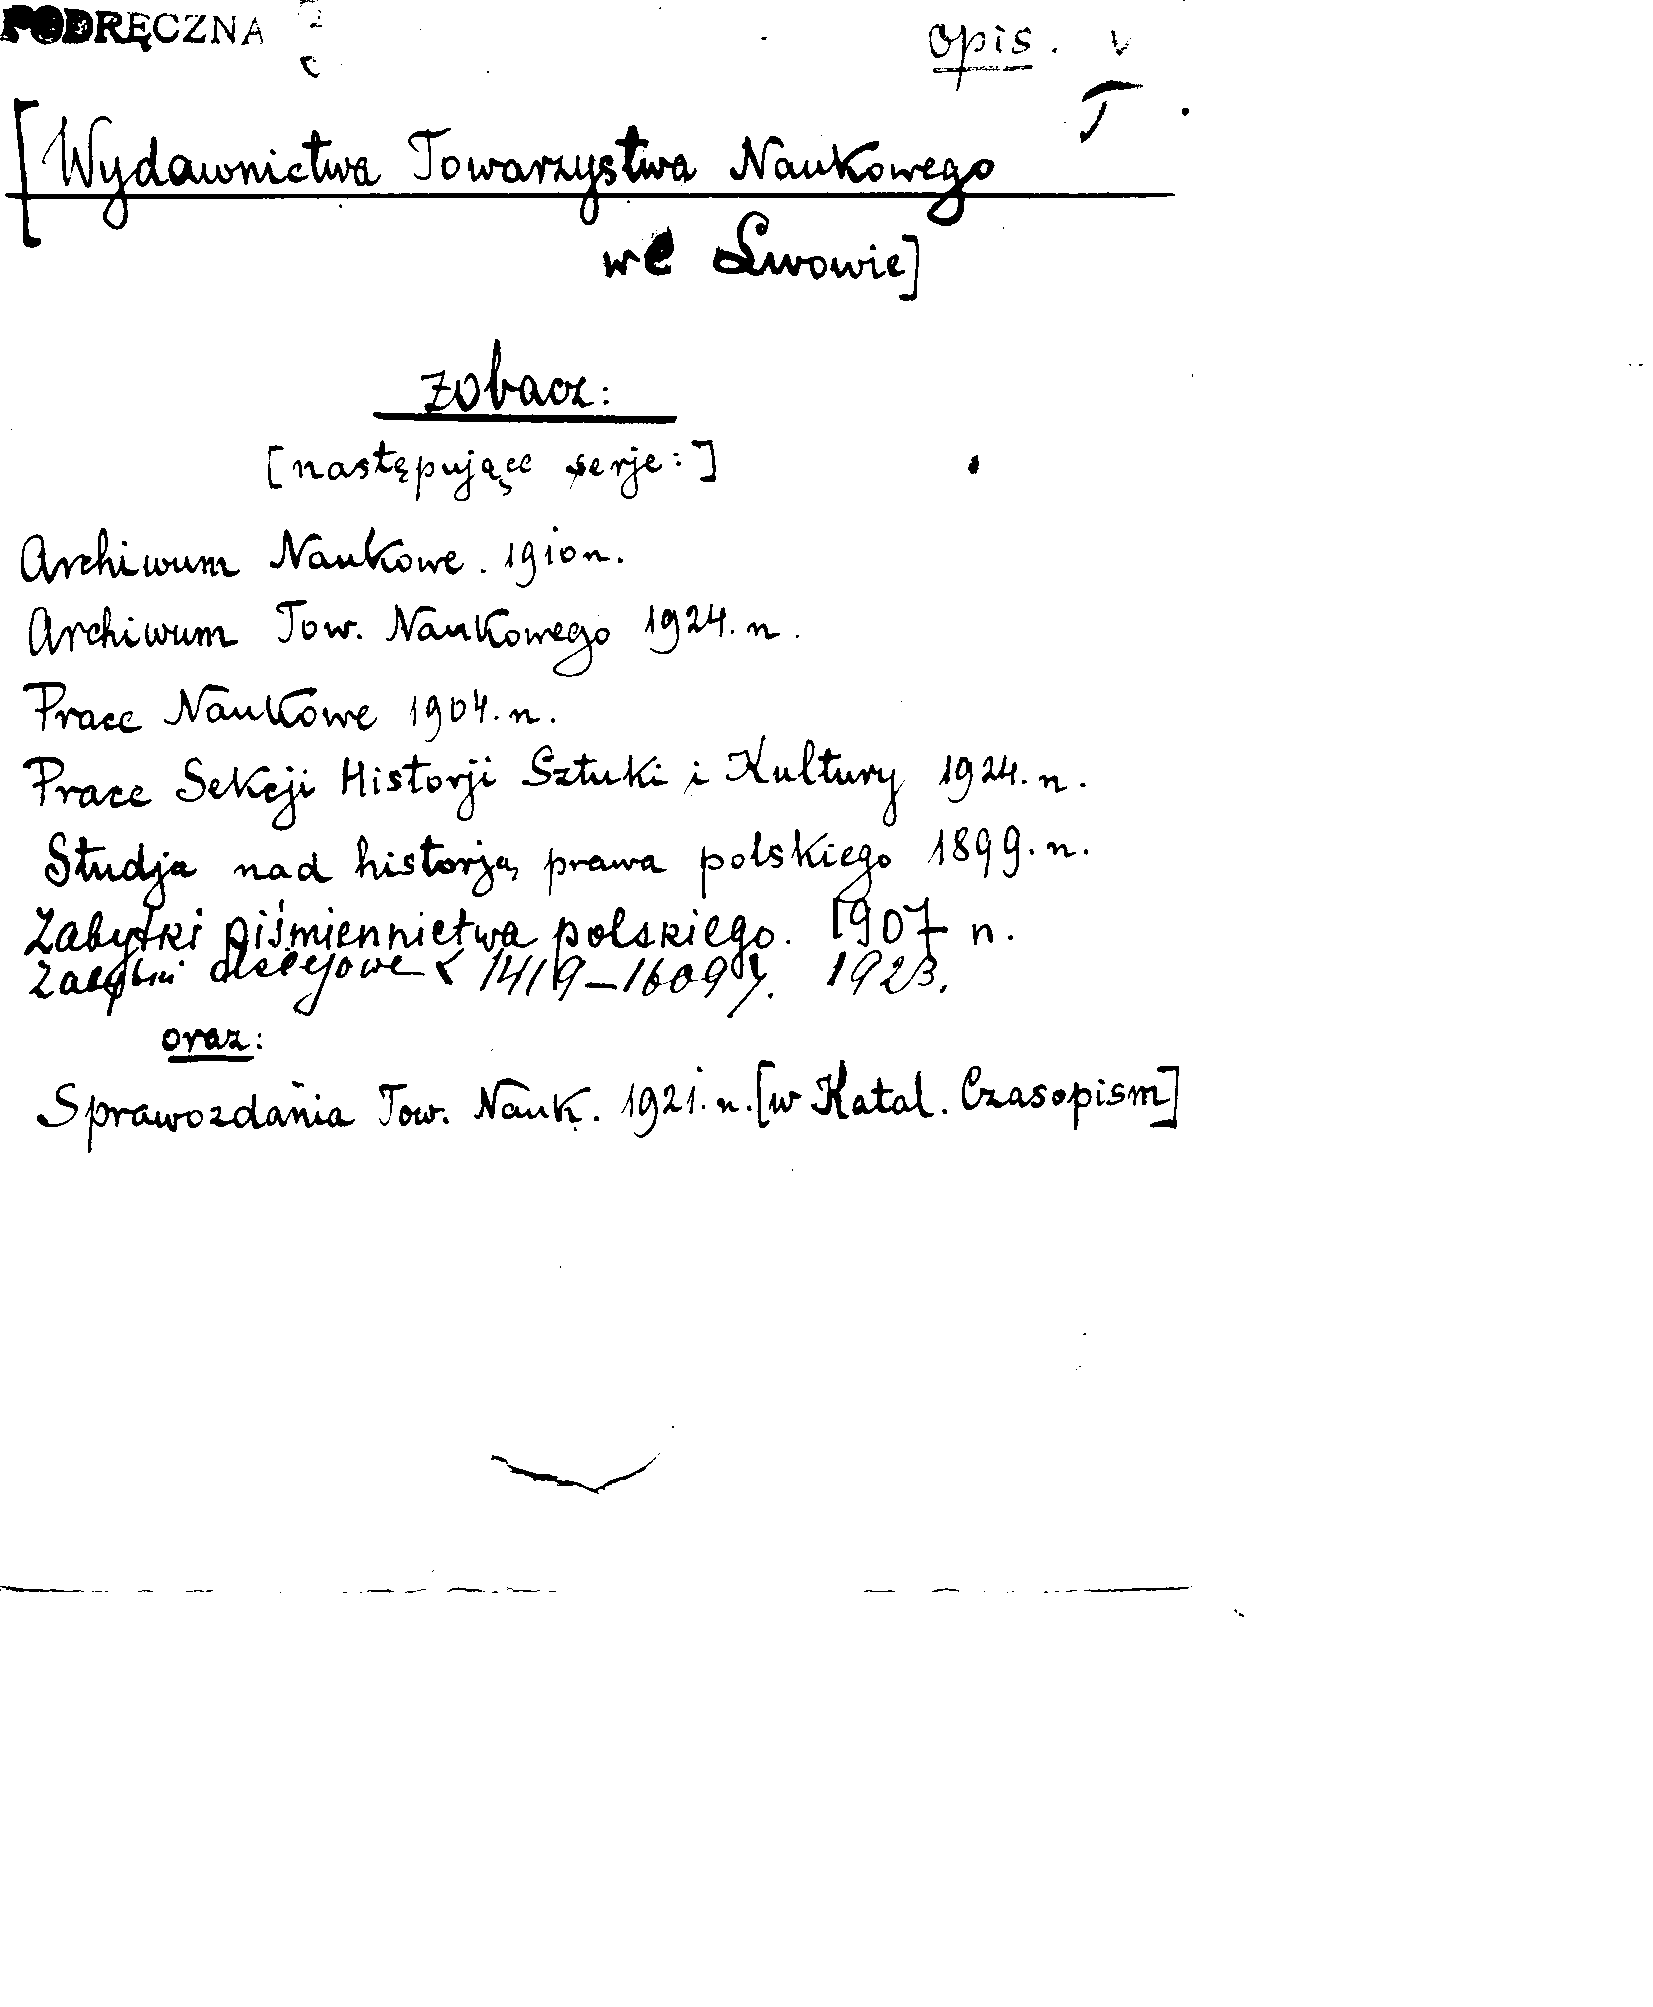 PODRĘCZNA
opis. v
T
[Wydawnictwa Towarzystwa Naukowego
we Lwowie]
zobacz:
[następujące serje:]
Archiwum Naukowe. 1910 n.
Archiwum Tow. Naukowego 1924. n.
Prace Naukowe 1904. n.
Prace Sekcji Historji Sztuki i Kultury 1924. n.
Studja nad historją prawa polskiego 1899. n.
Zabytki piśmiennictwa polskiego. 1907 n.
Zabytki dziejowe 1419–1609. 1923.
oraz:
Sprawozdania Tow. Nauk. 1921. n. [w Katal. Czasopism]